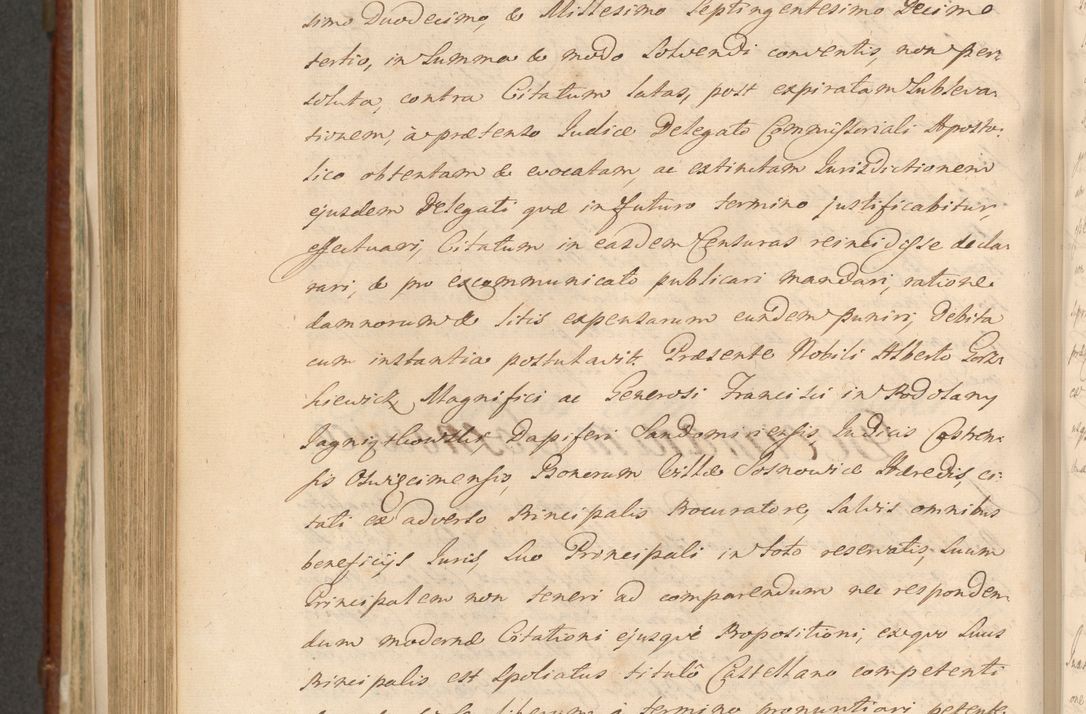 simo Duodecimo, & Millesimo Septingentesimo Decimo
tertio, in Summa & modo Solvendi conventis, non per-
soluta, contra Citatum latas, post expiratam Subleva-
tionem, à prætenso Iudice Delegato Commissoriali Aposto-
lico obtentam & evocatam, ac extinctam Iurisdictionem
ejusdem Delegati quæ in futuro termino justificabitur,
effectuari, Citatum in easdem Censuras reincidisse decla-
rari, & pro excommunicato publicari mandari, ratione
damnorum & litis expensarum eundem puniri, Debita
cum instantia postulavit. Præsente Nobili Alberto Gorz-
kiewicz Magnifici ac Generosi Francisci in Podolany
Jagniątkowski Dapiferi Sandomiriensis, Iudicis Castren-
sis Osviecimensis, Bonorum Villæ Sosnowice Hæredis, ci-
tati ex adverso Principalis Procuratore, Salvis omnibus
beneficijs Iuris, Suo Principali in toto reservatis, Suum
Principalem non teneri ad comparendum nec responden-
dum modernæ Citationi ejusquè Propositioni, ex quo Suus
Principalis est Spoliatus titulô Castellano competenti
liberum à termino pronuntiari petente